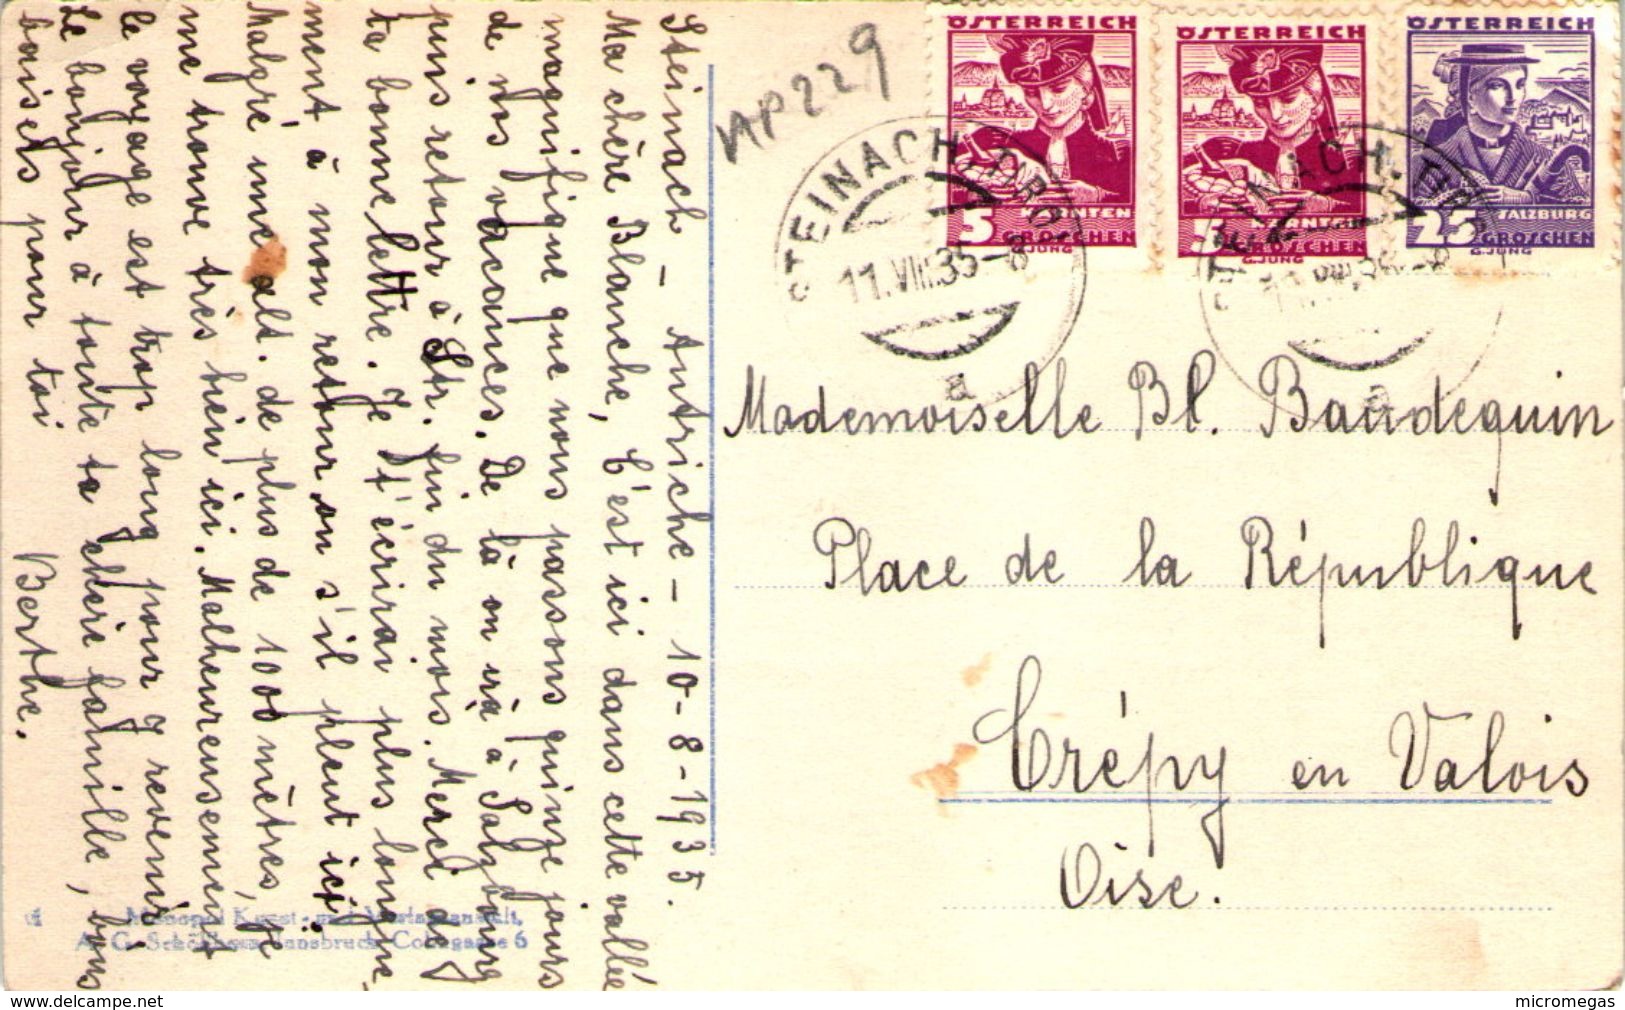 Steinach - Autriche - 10-8-1935.
Ma chère Blanche, C'est ici dans cette vallée
magnifique que nous passons quinze jours
de nos vacances. De là on ira à Salzbourg
puis retour à Str. fin du mois. Merci de
ta bonne lettre. Je t'écrirai plus longue-
ment à mon retour ou s'il pleut ici.
Malgré une alt. de plus de 1000 mètres, je
me trouve très bien ici. Malheureusement
le voyage est trop long pour y revenir.
Le bonjour à toute ta chère famille, bons
baisers pour toi
Berthe.
MP229
ÖSTERREICH
5 KÄRNTEN
GROSCHEN
G.JUNG
ÖSTERREICH
5 KÄRNTEN
GROSCHEN
G.JUNG
ÖSTERREICH
SALZBURG
25 GROSCHEN
G.JUNG
STEINACH, TIROL
11.VIII.35-8
a
STEINACH, TIROL
11.VIII.35-8
a
Mademoiselle Bl. Baudequin
Place de la République
Crépy en Valois
Oise.
Monopol Kunst- und Verlagsanstalt,
A. G. Schöllhorn, Innsbruck, Colingasse 6
Recto / Verso
micromegas